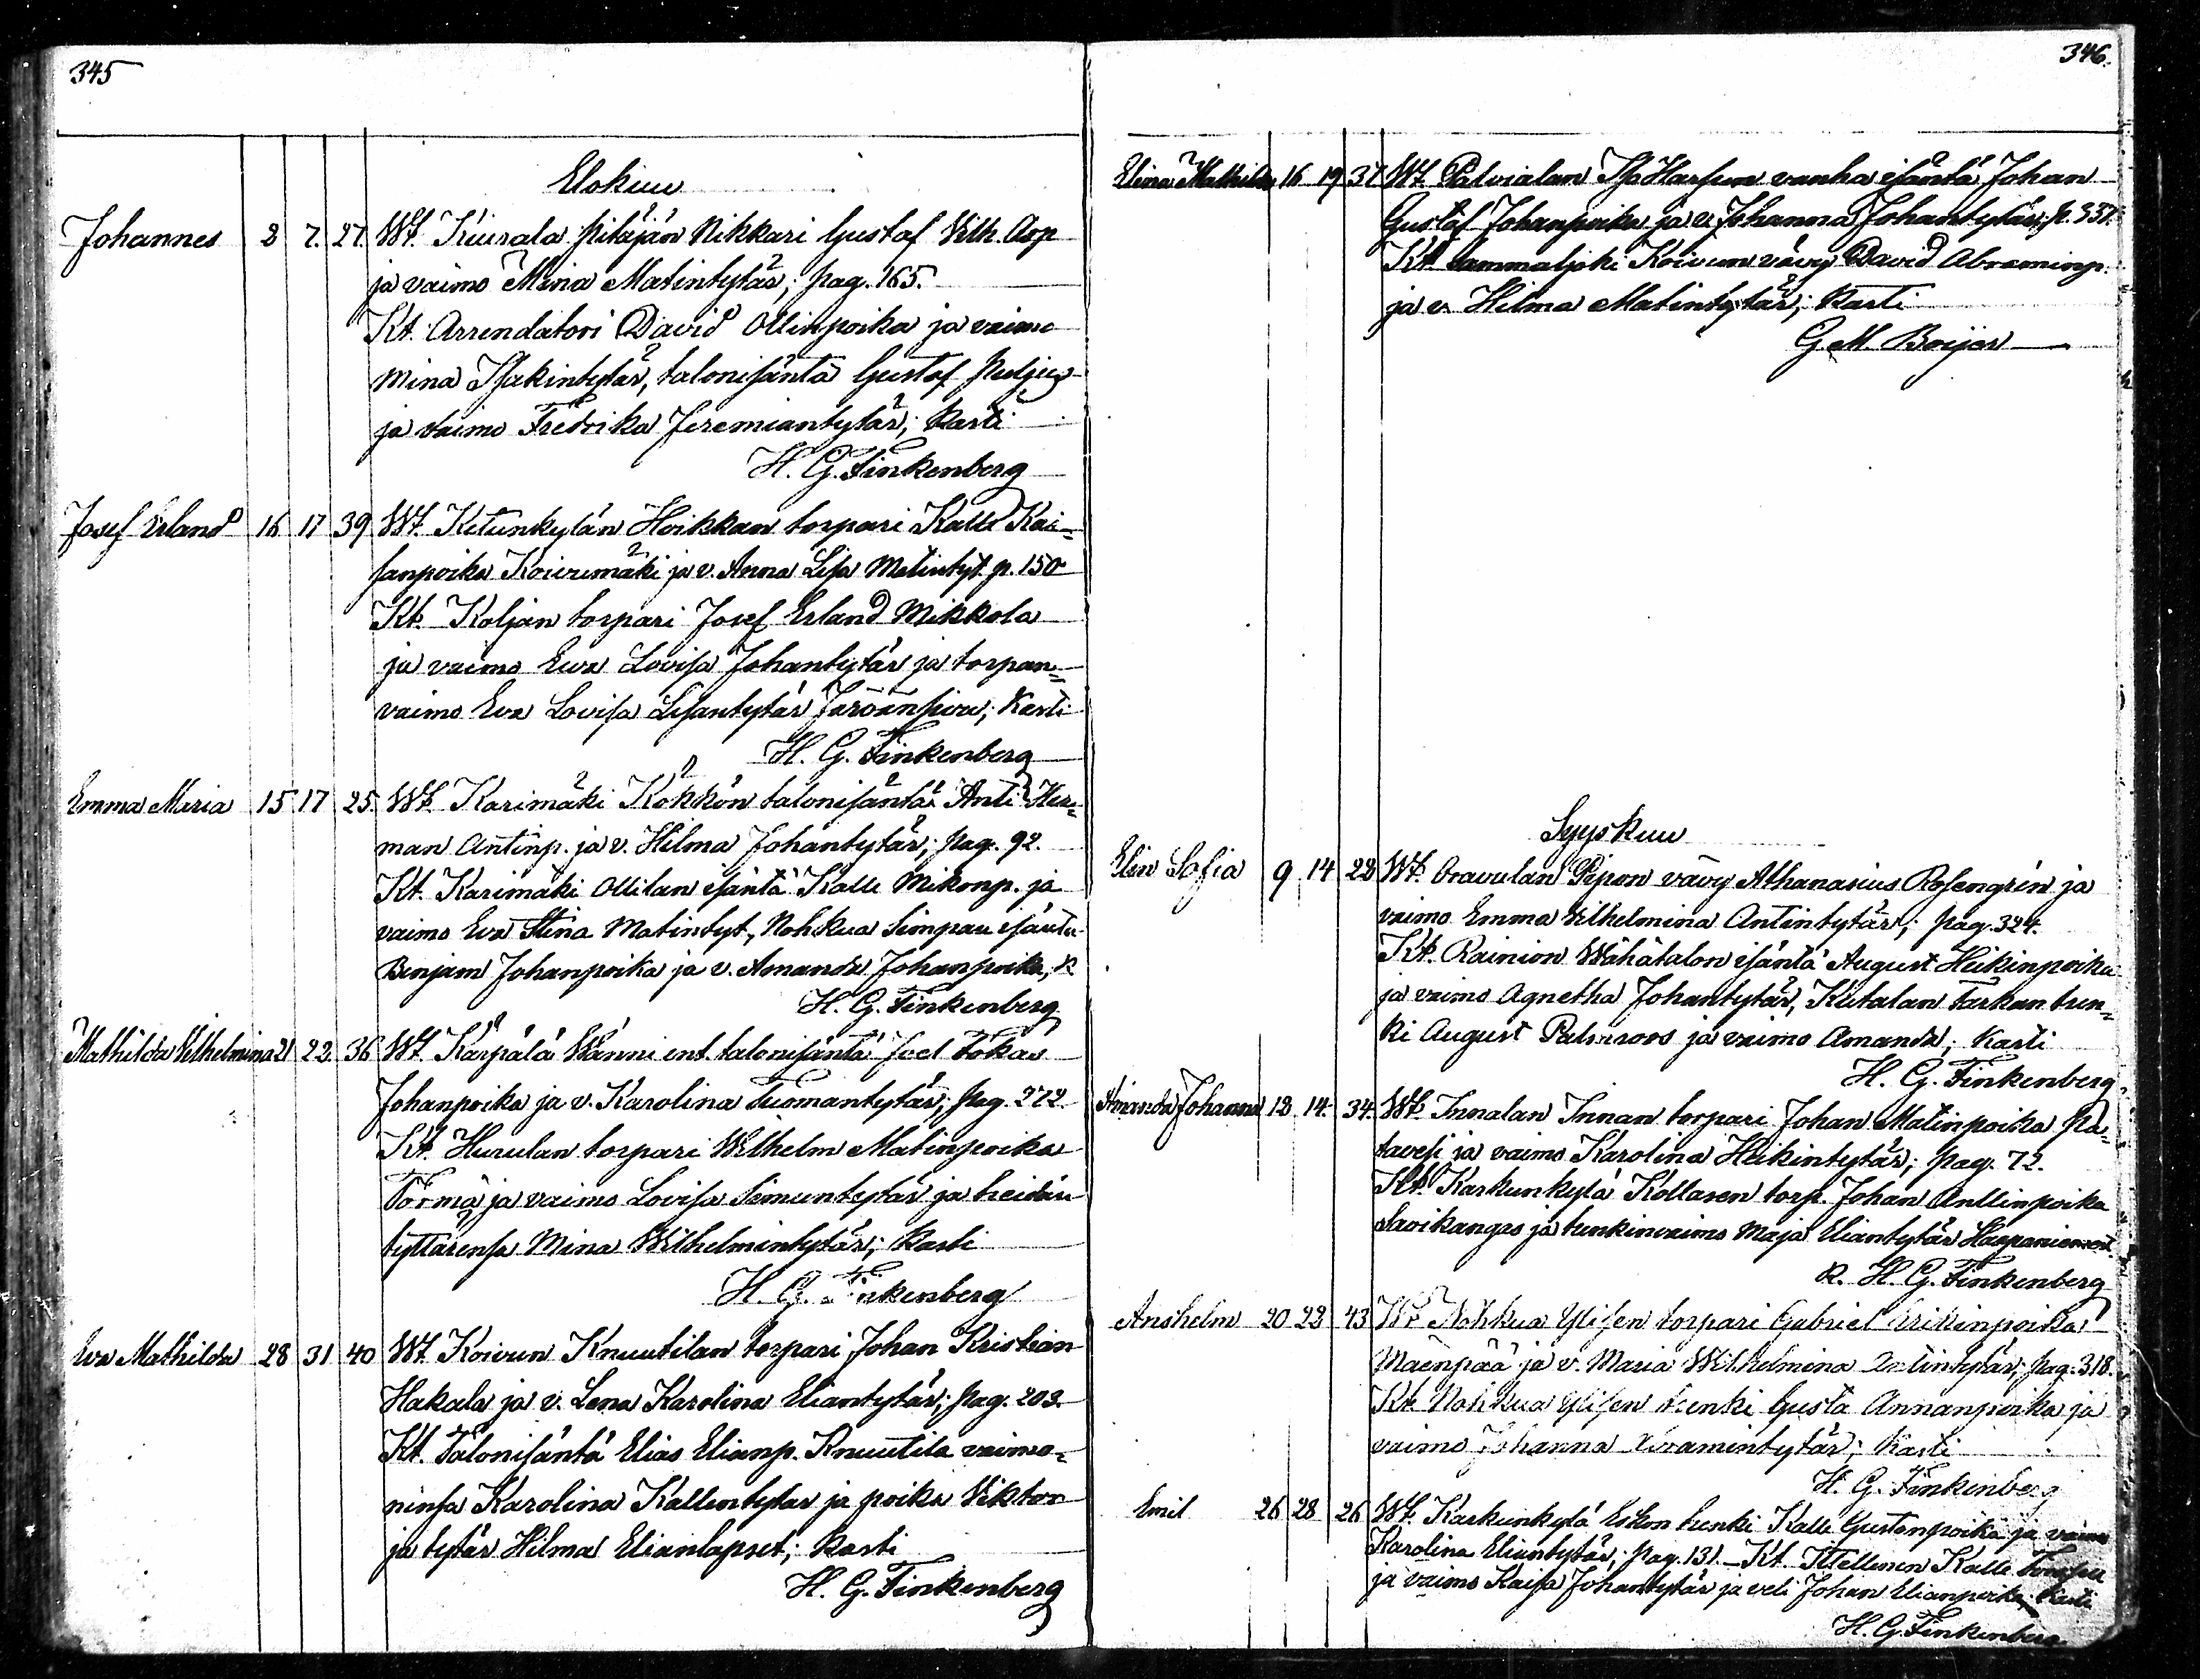 345
Elokuu
Johannes 2 7. 27. Wt. Kiurala pitäjän Nikkari Gustaf Vilh. Aop
ja vaimo Mina Matintytär; pag. 165.
Kt. Arrendatori David Ollinpoika ja vaimo
Mina Isakintytär, talonisäntä Gustaf
ja vaimo Fredrika Jeremiantytär; kasti
H. G. Finkenberg
Josef Erland 16 17 39 Wt. Ketunkylän Hoikkan torpari Kalle Kai-
sanpoika Koivumäki ja v. Anna Lisa Matintyt. p. 150
Kt. Koljan torpari Josef Erland Mikkola
ja vaimo Eva Lovisa Johantytär ja torpan-
vaimo Eva Lovisa; Kasti
H. G. Finkenberg
Emma Maria 15 17 25. Wt. Karimäki Kökkön talonisäntä Anti Her-
man Antinp. ja v. Hilma Johantytär; pag. 92.
Kt. Karimäki Ollilan isäntä Kalle Mikonp. ja
vaimo Eva Stina Matintyt, Nohkua Simpan isäntä
Benjam Johanpoika ja v. Amanda Johanpoika; K
H. G. Finkenberg
Mathilda Vilhelmina 21 22. 36 Wt. Karpälä Wänni ent. talonisäntä Joel Tökas
Johanpoika ja v. Karolina Tuomantytär; pag. 272.
Kt. Hurulan torpari Wilhelm Matinpoika
Törmä ja vaimo Lovisa Simuntytär ja heidän
tyttärensa Mina Wilhelmintytär; kasti
H. G. Finkenberg
Eva Mathilda 28 31 40 Wt. Koivun Knuutilan torpari Johan Kristian
Hakala ja v. Lena Karolina Eliantytär; pag. 203.
Kt. Talonisäntä Elias Elianp. Knuutila vaimo-
ninsa Karolina Kallentytär ja poika Viktor
ja tytär Hilma Elianlapset; kasti
H. G. Finkenberg
346.
Elina Mathilda 16 19 37 Wt. vanha isäntä Johan
Gustaf Johanpoika ja v. Johanna Johantytär; p. 337.
Kt. Sammaljoki Koivun vävy David Abraminp.
ja v. Hilma Matintytär; kasti
G. M. Boijer
Syyskuu
Elin Sofia 9 14 22 Wt. Oravulan Pipon vävy Athanasius Rosengrén ja
vaimo Emma Wilhelmina Antintytär; pag. 324.
Kt. Rainion Wähätalon isäntä August Heikinpoika
ja vaimo Agnetha Johantytär, Kutalan Tarkan tren-
ki August Palmroos ja vaimo Amanda; kasti
H. G. Finkenberg
Amanda Johanna 12 14. 34. Wt. Innalan Innan torpari Johan Matinpoika Pa-
tavesi ja vaimo Karolina Heikintytär; pag. 72.
Kt. Karkunkylä Kollasen torp. Johan Anttinpoika
Savikangas ja trenkinvaimo Maja Eliantytär Haapaniemest.
K. H. G. Finkenberg
Anshelm 20 22 43 Wt. Nohkua Ylisen torpari Gabriel Erikinpoika
Mäenpää ja v. Maria Wilhelmina Antintytär; pag. 318.
Kt. Nohkua Ylisen trenki Gusta Annanpoika ja
vaimo Johanna Abramintytär; kasti
H. G. Finkenberg
Emil 26 28 26 Wt. Karkunkylä Eskon trenki Kalle Gustanpoika ja vaimo
Karolina Eliantytär; pag. 131. Kt. Itsellinen Kalle
ja vaimo Kaisa Johantytär ja veli Johan Elianpoika; kasti
H. G. Finkenberg